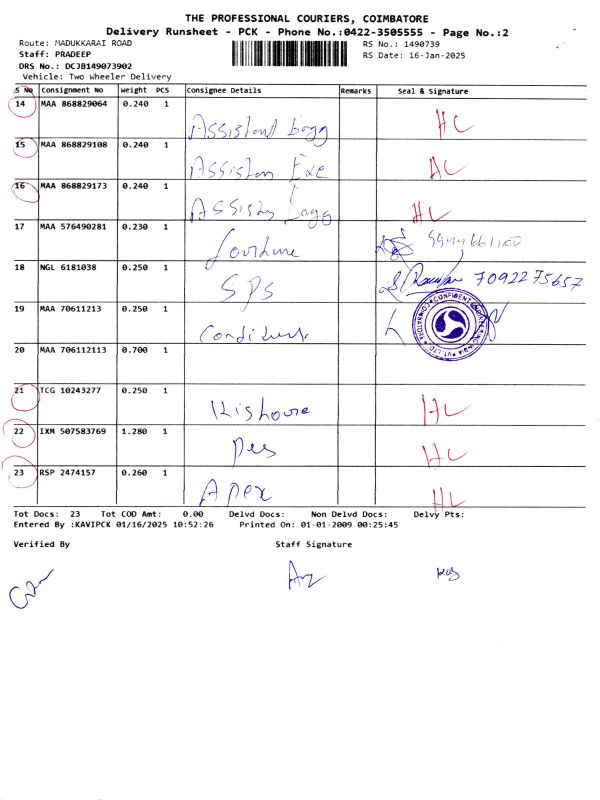 THE PROFESSIONAL COURIERS, COIMBATORE
Delivery Runsheet - PCK - Phone No.:0422-3505555 - Page No.:2
Route: MADUKKARAI ROAD RS No.: 1490739
Staff: PRADEEP RS Date: 16-Jan-2025
DRS No.: DCJB149073902
Vehicle: Two Wheeler Delivery
S No Consignment No Weight PCS Consignee Details Remarks Seal & Signature
14 MAA 868829064 0.240 1 HC
Assistant
15 MAA 868829108 0.240 1 HC
Assistan Exe
16 MAA 868829173 0.240 1 HC
17 MAA 576490281 0.230 1
18 NGL 6181038 0.250 1 7092275657
SPS
19 MAA 70611213 0.250 1
CONFIDENT ENGINEERING INDIA PVT. LTD. COIMBATORE
20 MAA 706112113 0.700 1
21 TCG 10243277 0.250 1 HC
Kishore
22 IXM 507583769 1.280 1 HC
23 RSP 2474157 0.260 1 HC
Apex
Tot Docs: 23 Tot COD Amt: 0.00 Delvd Docs: Non Delvd Docs: Delvy Pts:
Entered By :KAVIPCK 01/16/2025 10:52:26 Printed On: 01-01-2009 00:25:45
Verified By Staff Signature